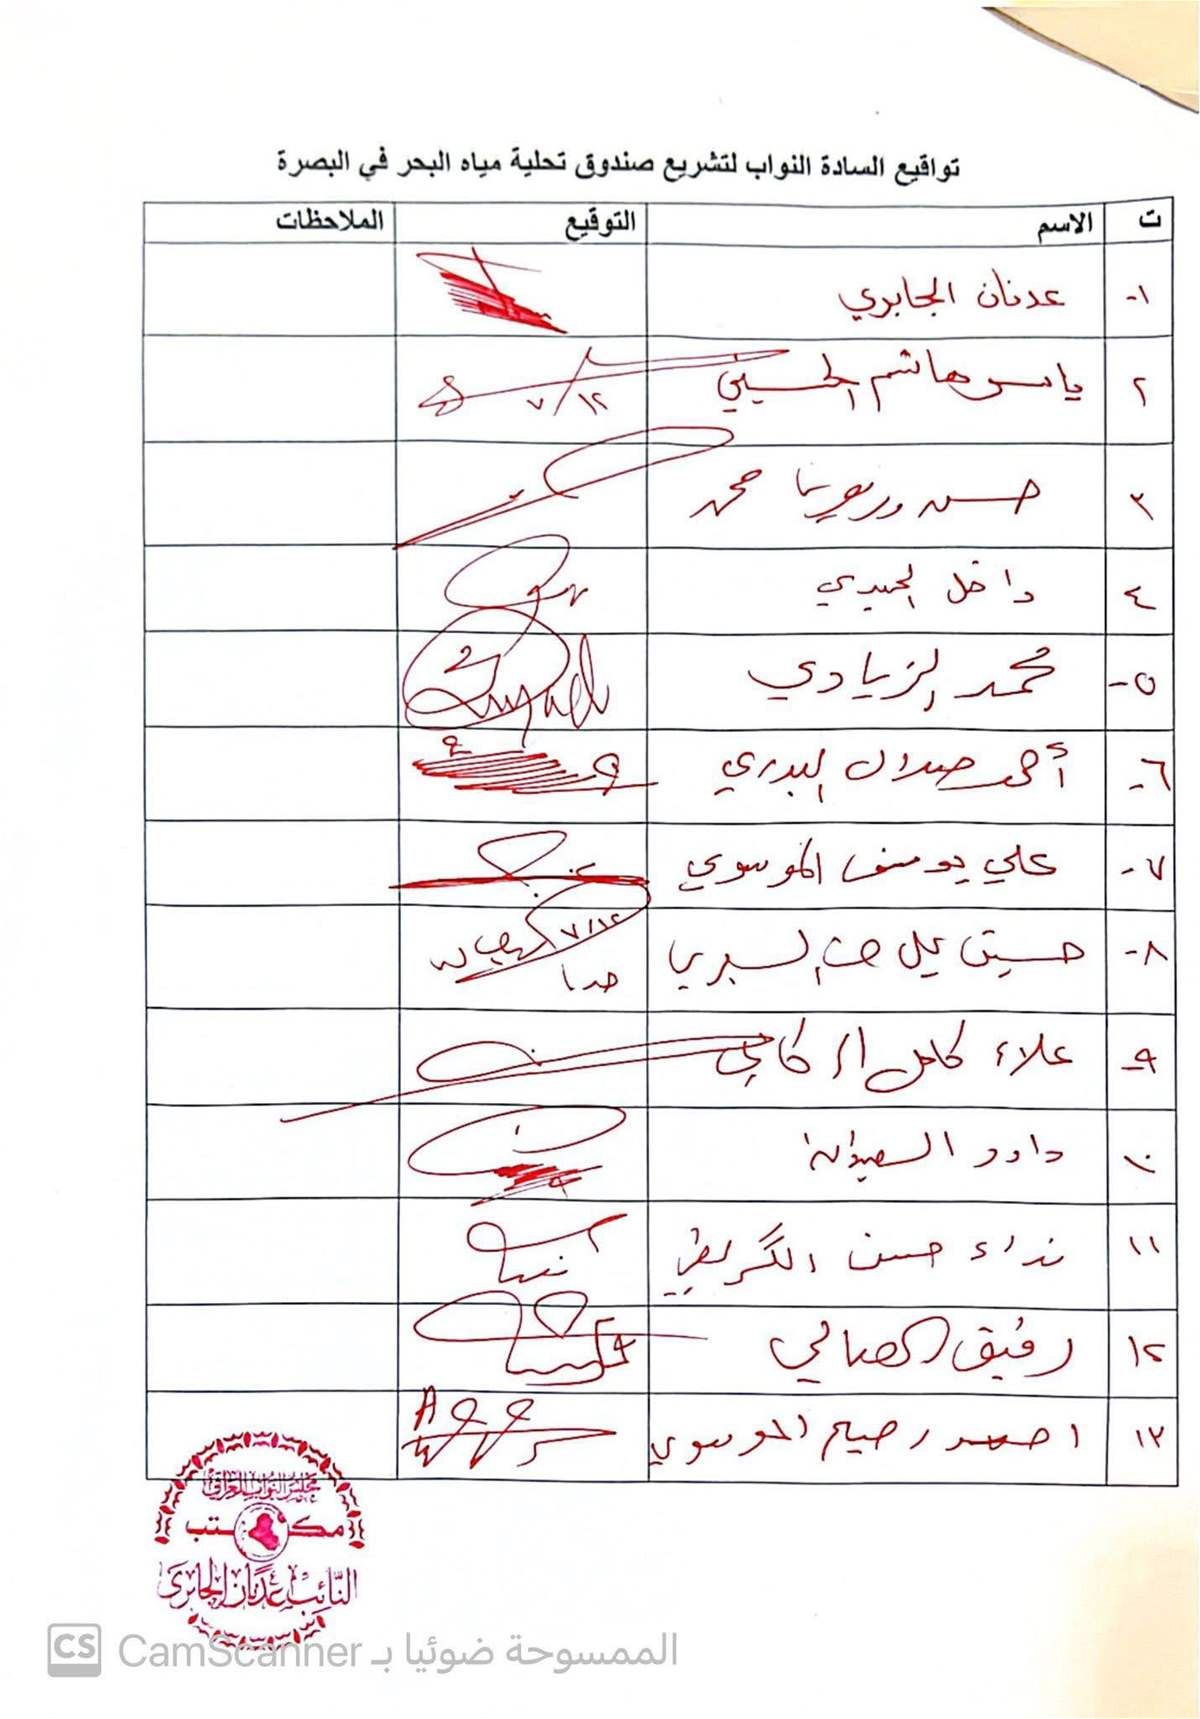 تواقيع السادة النواب لتشريع صندوق تحلية مياه البحر في البصرة
ت الاسم التوقيع الملاحظات
١- عدنان الجابري
٢ ياسر هاشم الحسيني ٧/١٢
٣ حسن وريوش محمد
٤ داخل الحميدي
٥- محمد الزيادي
٦- أحمد صلال البدري
٧- علي يوسف الموسوي
٨- حسين علي ٧/١٢
٩- علاء كامل الركابي
١٠ داود العيدان
١١ نداء حسن الكريطي
١٢ رفيق الصالحي
١٣ الموسوي
مجلس النواب العراقي
مكتب
النائب عدنان الجابري
CS CamScanner الممسوحة ضوئيا بـ